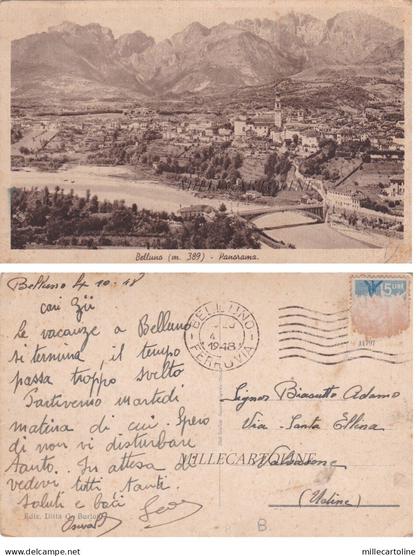 Belluno (m. 389) - Panorama.
MILLECARTOLINE
Belluno 4-10-48
cari Zii
le vacanze a Belluno
si termina, il tempo
passa troppo svelto
Partiremo martedì
matina di cui. Spero
di non vi disturbare
tanto. In attesa de
vedervi tutti tanti
saluti e baci
BELLUNO
4
1948
FERROVIA
5 LIRE
Signor Biasutto Adamo
Via-Santa Ellena
Valvasone
(Udine)
MILLECARTOLINE
Ediz. Ditta G. Burlo
B